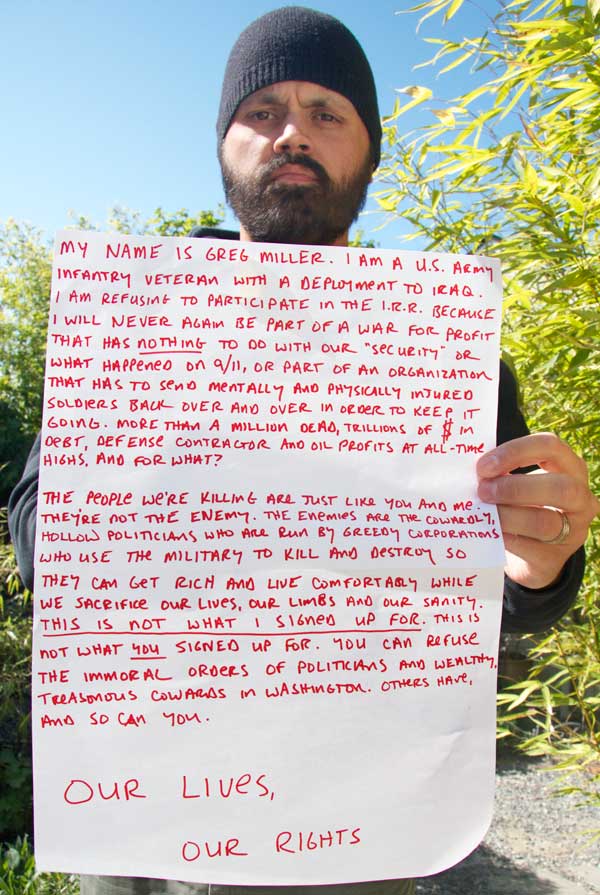 MY NAME IS GREG MILLER. I AM A U.S. ARMY
INFANTRY VETERAN WITH A DEPLOYMENT TO IRAQ.
I AM REFUSING TO PARTICIPATE IN THE I.R.R. BECAUSE
I WILL NEVER AGAIN BE PART OF A WAR FOR PROFIT
THAT HAS NOTHING TO DO WITH OUR "SECURITY" OR
WHAT HAPPENED ON 9/11, OR PART OF AN ORGANIZATION
THAT HAS TO SEND MENTALLY AND PHYSICALLY INJURED
SOLDIERS BACK OVER AND OVER IN ORDER TO KEEP IT
GOING. MORE THAN A MILLION DEAD, TRILLIONS OF $ IN
DEBT, DEFENSE CONTRACTOR AND OIL PROFITS AT ALL-TIME
HIGHS, AND FOR WHAT?
THE PEOPLE WE'RE KILLING ARE JUST LIKE YOU AND ME.
THEY'RE NOT THE ENEMY. THE ENEMIES ARE THE COWARDLY,
HOLLOW POLITICIANS WHO ARE RUN BY GREEDY CORPORATIONS
WHO USE THE MILITARY TO KILL AND DESTROY SO
THEY CAN GET RICH AND LIVE COMFORTABLY WHILE
WE SACRIFICE OUR LIVES, OUR LIMBS AND OUR SANITY.
THIS IS NOT WHAT I SIGNED UP FOR. THIS IS
NOT WHAT YOU SIGNED UP FOR. YOU CAN REFUSE
THE IMMORAL ORDERS OF POLITICIANS AND WEALTHY,
TREASONOUS COWARDS IN WASHINGTON. OTHERS HAVE,
AND SO CAN YOU.
OUR LIVES,
OUR RIGHTS